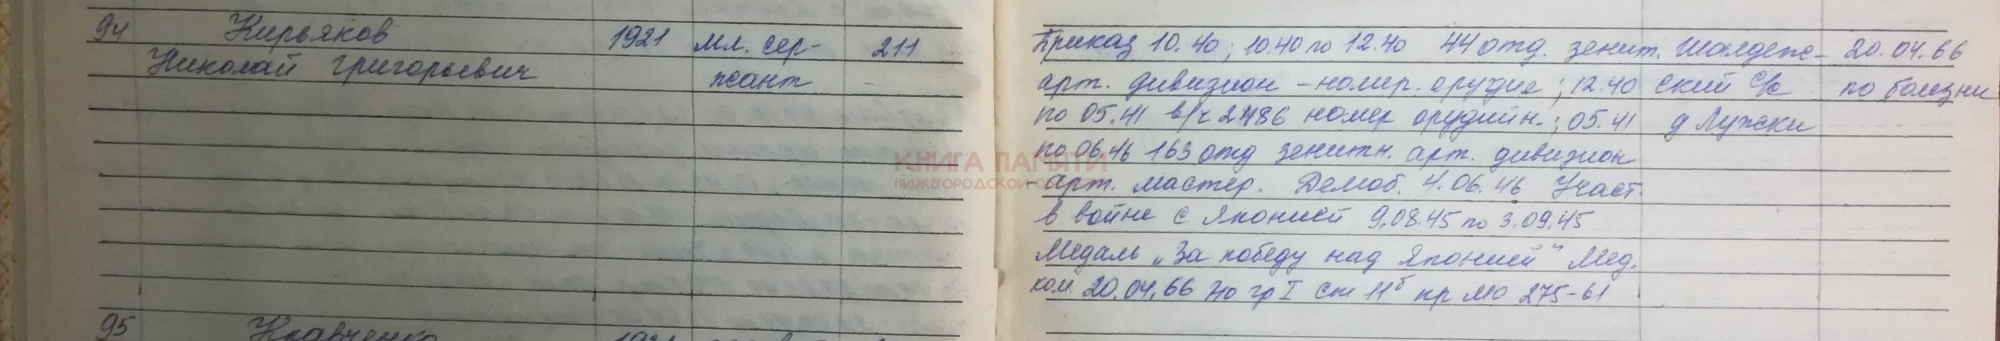 94 Кирьяков 1921 мл. сер- 211
Николай Григорьевич жант
Призваз 10.40; 10.40 по 12.40 44 отд. зенит. Шалдеж- 20.04.66
арт. дивизион - номер. орудие; 12.40 ский С/с по болезни
по 05.41 в/ч 2486 номер орудийн.; 05.41 д Лужски
по 06.46 163 отд зенитн. арт. дивизион
- арт. мастер. Демоб. 4.06.46 Участ.
в войне с Японией 9.08.45 по 3.09.45
Медаль „За победу над Японией" Мед.
ком. 20.04.66 по гр I ст 11б пр МО 275-61
КНИГА ПАМЯТИ
НИЖЕГОРОДСКОЙ
95 Кравченко 1921